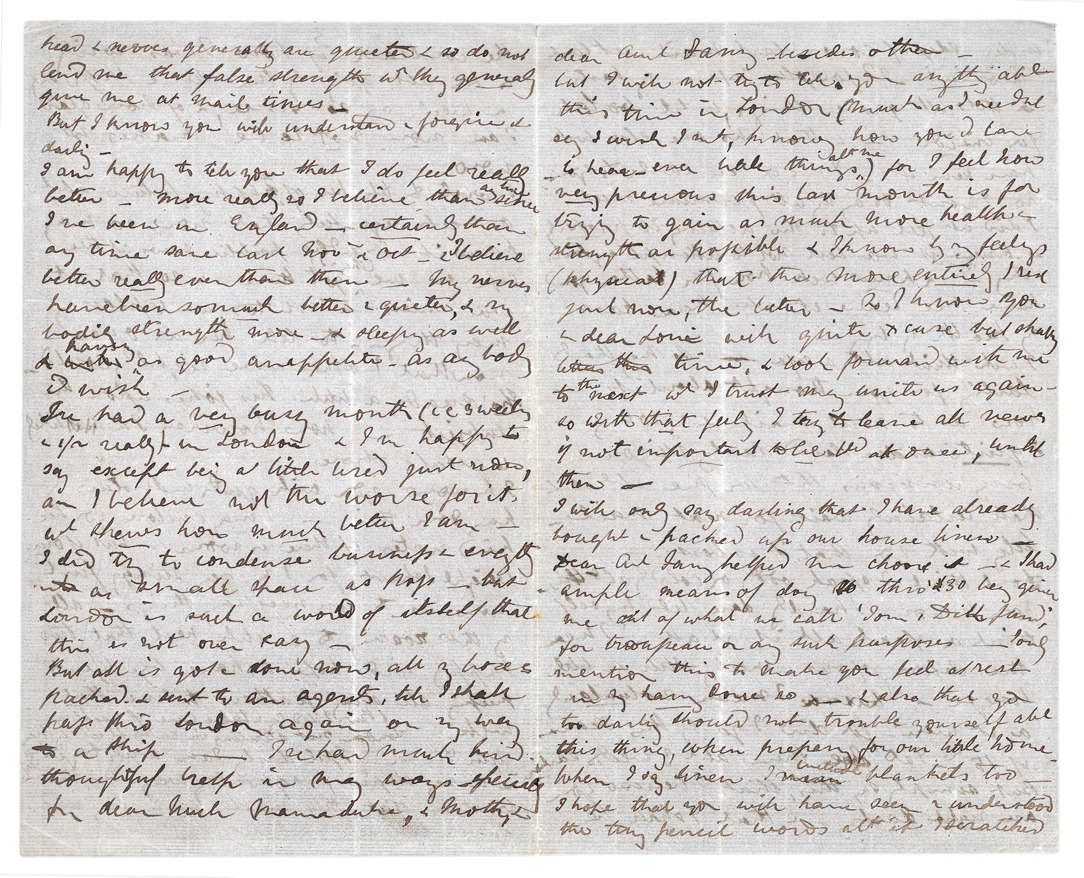 head & nerves generally are quieter & so do not
lend me that false strength wh they generally
give me at mail times –
But I know you will understand & forgive it
darlg –
I am happy to tell you that I do feel really
better – more really so I believe than at any time since
I've been in England – certainly than
any time save last Nov & Oct – & I believe
better really even than then – My nerves
have been so much better & quieter, & my
bodily strength more – & sleepg as well
& having as good an appetite – as any body
I'd wish –
I've had a very busy month (i e 3 weeks
& 1/2 really) in London & I'm happy to
say except being a little tired just now,
am I believe not the worse for it.
wh shews how much better I am –
I did try to condense business & everythg
into as small space as poss – but
London is such a world of itself that
this is not over easy –
But all is got & done now, all my boxes
packed & sent to an agents, till I shall
pass thro London again on my way
to a ship — I've had much kind
thoughtful help in many ways – specially
fm dear Uncle Marmaduke, & Mother &
dear Aunt Fanny – besides others –
but I will not try to tell you anythg abt
this time in London (much as I need not
say I wish I cd, knowg how you'd care
to hear – ever little things abt me) for I feel how
very precious this last month is for
tryg to gain as much more health &
strength as possible & I know by my feelgs
(physical) that the more entirely I rest
just now, the better – So I know you
& dear will quite excuse but
this time, & look forward with me
to the next wh I trust may unite us again –
so with that feelg I try to leave all news
if not important to be told at once, until
then —
I will only say darling that I have already
bought & packed up our house linen –
Dear Aunt Fanny helped me choose it – & I had
ample means of doing so thro' £30 being given
me out of what we call 'Tom & fund',
for trousseau or any such purposes – I only
mention this to make you feel at rest
in my having done so – & also that you
too darlg should not trouble yourself abt
this thing, when preparg for our little home –
When I say linen I include blankets too –
I hope that you will have seen & understood
the tiny pencil words abt it I scratched